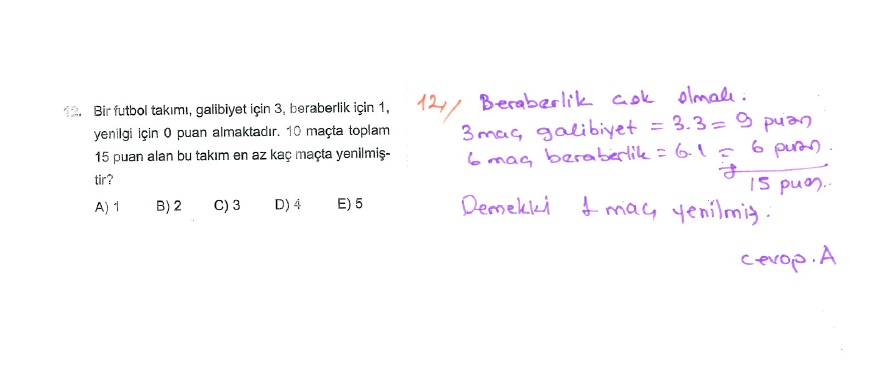 12. Bir futbol takımı, galibiyet için 3, beraberlik için 1,
yenilgi için 0 puan almaktadır. 10 maçta toplam
15 puan alan bu takım en az kaç maçta yenilmiş-
tir?
A) 1 B) 2 C) 3 D) 4 E) 5
12,/ Beraberlik çok olmalı.
3 maç galibiyet = 3.3 = 9 puan
6 maç beraberlik = 6.1 = 6 puan.
+
15 puan..
Demekki 1 maç yenilmiş.
cevap. A